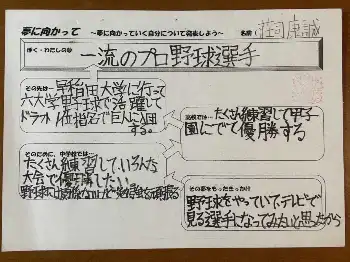 夢に向かって ～夢に向かっていく自分について発表しよう～ 名前（荘司康誠
ぼく・わたしの夢
一流のプロ野球選手
その先は…早稲田大学に行って
六大学野球で活躍して
ドラフト1位指名で巨人に入団
する。
高校では…たくさん練習して甲子
園にでて優勝する
そのために、中学校では…
たくさん練習して、いろんな
大会で優勝したい
野球
頑張る
その夢をもったきっかけ
野球をやっていて、テレビで
見る選手になってみたいと思ったから